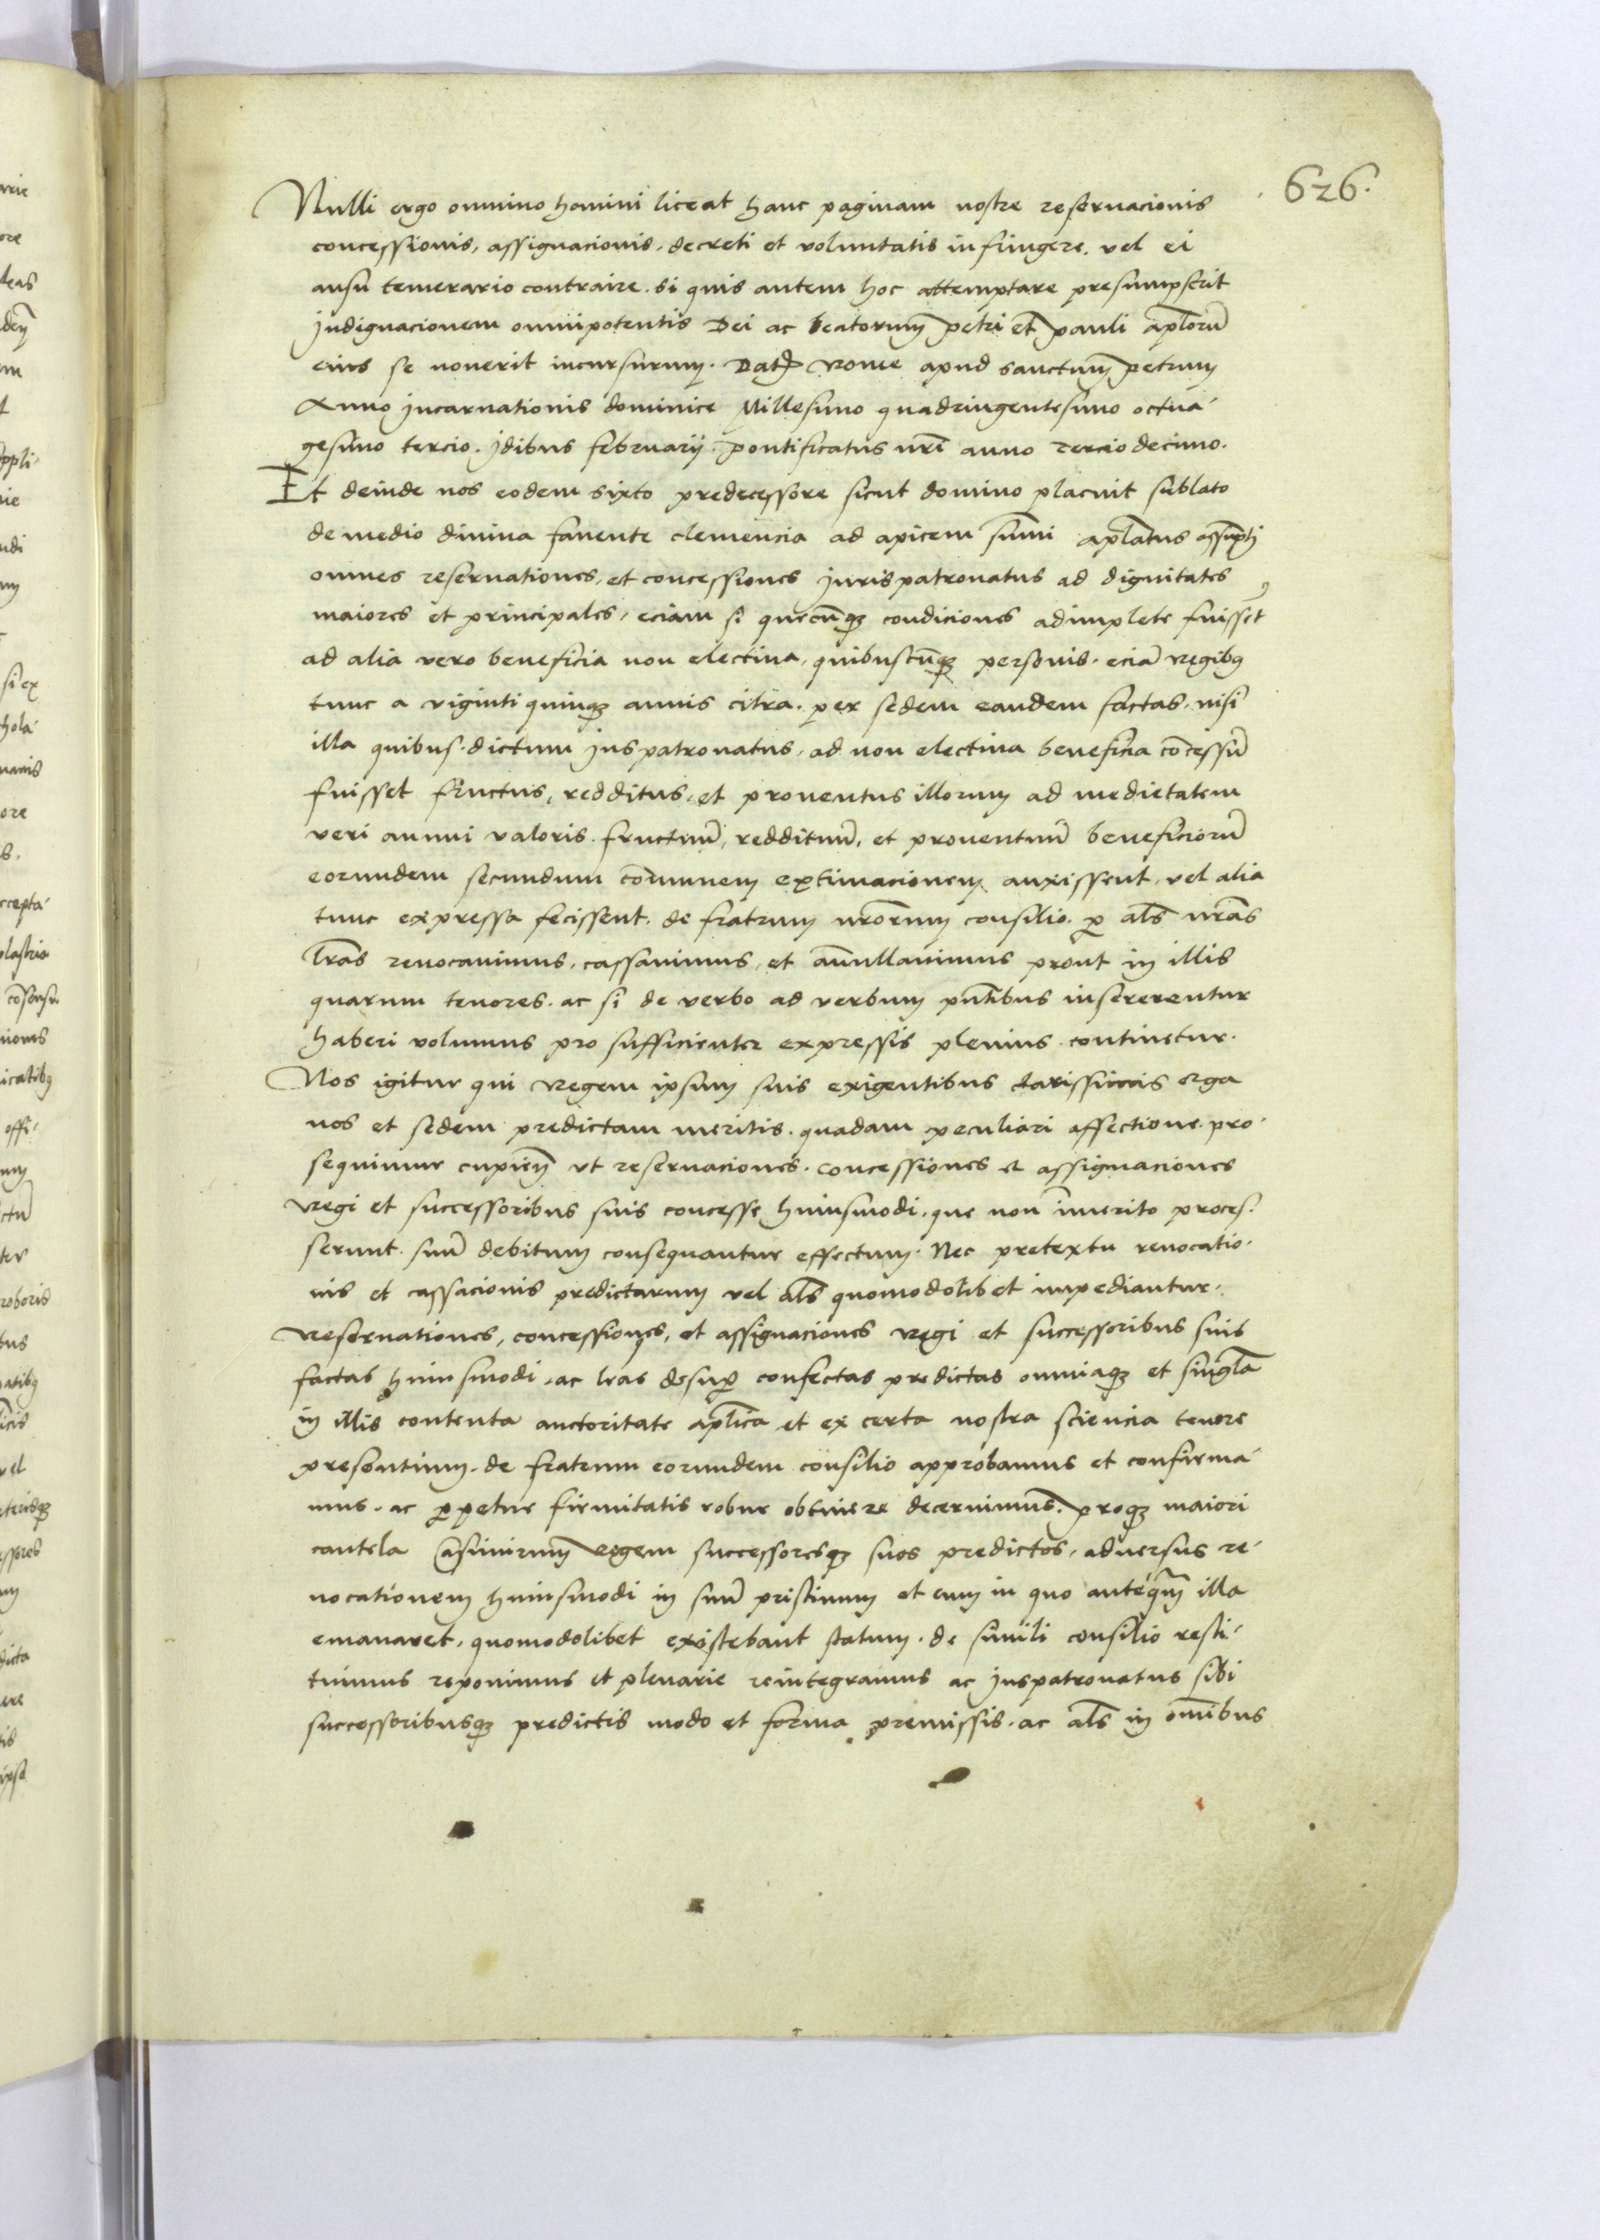 626.
Nulli ergo omnino homini liceat hanc paginam nostre reseruacionis
concessionis, assignacionis, decreti et voluntatis infringere. vel ei
ausu temerario contraire. si quis autem hoc attemptare presumpserit
Indignacionem omnipotentis Dei ac beatorum petri et pauli aplorū
eius se nouerit incursurum. Dat Rome apud sanctum petrum
Anno Incarnationis dominice Millesimo quadringentesimo octua-
gesimo tercio. Idibus februarij. pontificatus nrī anno Terciodecimo.
Et deinde nos eodem sixto predecessore sicut domino placuit sublato
de medio diuina fauente clemencia ad apicem sūmi aplatus assūpti
omnes reseruationes, et concessiones Iurispatronatus ad dignitates
maiores et principales, eciam si quecūqȝ condiciones adimplete fuissēt
ad alia vero beneficia non electiua, quibuscūqȝ personis. eciā Regibȝ
tunc a viginti quinqȝ annis citra. per sedem eandem factas. nisi
illa quibus dictum Iuspatronatus, ad non electiua beneficia cōcessū
fuisset fructus, redditus, et prouentus illorum ad medietatem
veri annui valoris. fructuū, reddituū, et prouentuū beneficiorū
eorumdem secundum cōmunem extimacionem auxissent, vel alia
tunc expressa fecissent. de fratrum nrōrum consilio. ꝑ als nrās
lrās reuocauimus, cassauimus, et ānullauimus prout in illis
quarum tenores. ac si de verbo ad verbum pntibus insererentur
haberi volumus pro sufficienter expressis plenius continetur.
Nos igitur qui Regem ipsum suis exigentibus clarissimis erga
nos et sedem predictam meritis. quadam peculiari affectione. pro-
sequimur cupien ut reseruaciones. concessiones et assignaciones
Regi et successoribus suis concesse huiusmodi. que non īmerito proces-
serunt. suū debitum consequantur effectum. Nec pretextu reuocatio-
nis et cassacionis predictarum vel als quomodolibet impediantur.
Reseruationes, concessiones, et assignaciones Regi et successoribus suis
factas huiusmodi. ac lras desuꝑ confectas predictas omniaqȝ et singla
in illis contenta auctoritate aplica et ex certa nostra sciencia tenore
presentium. de fratrum eorumdem consilio approbamus et confirma-
mus. ac ꝑpetue firmitatis robur obtinere decernimus. proqȝ maiori
cautela Casimirum Regem successoresqȝ suos predictos, aduersus re-
uocationem huiusmodi in suū pristinum et eum in quo anteqm illa
emanaret, quomodolibet existebant statum. de simili consilio resti-
tuimus reponimus et plenarie reintegramus ac Iuspatronatus sibi
successoribusqȝ predictis modo et forma premissis. ac als in omībus